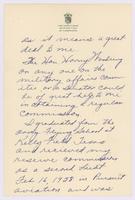 as it means a great
deal to me.
The Hon. Harry Woodring
or any one on the
military affairs Comm-
ittee or a Senator could
be of great help to me
in obtaining a regular
Commission.
I graduated from the
army Flying School at
Kelly Field Texas
and received my
reserve commission
as a Second Lieut.
Feb 16, 1938 in Pursuit
aviation and was